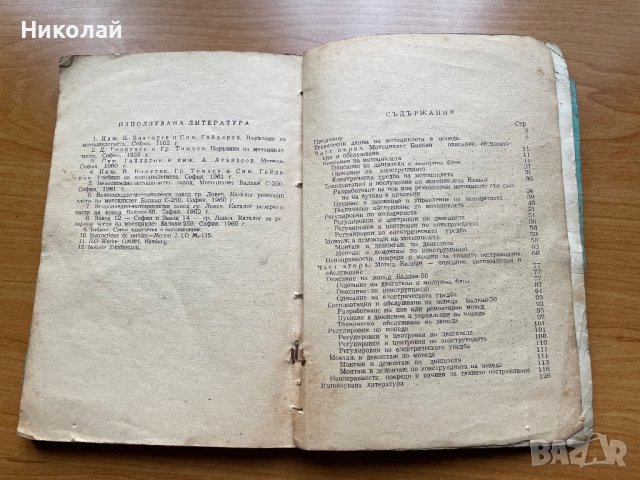 Николай
ИЗПОЛЗУВАНА ЛИТЕРАТУРА
1. Инж. В. Власарев и Сим. Гайдаров. Наръчник на
мотоциклетиста, София, 1962 г.
2. Д. Георгиев и Гр. Тимчев. Наръчник на мотоцик-
летиста. София, 1958 г.
3. Сим. Гайдаров и инж. А. Атанасов. Мотопед.
София, 1960 г.
4. Инж. В. Гр. Тимчев и Сим. Гай-
даров. Учебник за мотоциклетиста, София, 1961 г.
5. Велосипедно-мотоциклетен завод, Мотоциклет Балкан С-250,
София, 1961 г.
6. Велосипедно-мотоциклетен завод гр. Ловеч. Каталог резервни
части на мотоциклет Балкан С-250, София, 1960 г.
7. Велосипедно-мотоциклетен завод гр. Ловеч. Каталог резервни
части за мопед Балкан-50, София, 1962 г.
8. Завод 12 — София и Завод 14 — гр. Ловеч. Каталог за ре-
зервни части на мотоциклет Балкан-250, София, 1960 г.
10. Instructions de service—Motor J. L O M. 175.
11. JLO-Werke GMBH, Hamburg.
12. Isolator Zündkerzen.
СЪДЪРЖАНИЕ
Стр.
Предговор 3
Технически данни на мотоциклета и мопеда 5
Част първа. Мотоциклет Балкан — описание, експлоата-
ция и обслужване 11
Описание на мотоциклета 11
Описание на двигателя и моторния блок
Описание на конструкцията
Електрическа уредба на мотоциклета
Експлоатация и обслужване на мотоциклета
Разработване на нов или ремонтиран мотоциклет със смя-
на на бутала и цилиндри
Пускане в движение и управление на мотоциклета
Техническо обслужване на мотоциклета
Регулировки по мотоциклета
Регулировки и центровки по двигателя
Регулировки и центровки по конструкцията
Регулировки по електрическата уредба
Монтаж и демонтаж на мотоциклета
Монтаж и демонтаж по двигателя
Неизправности, повреди и начини за тяхното отстраняване 68
Част втора. Мопед Балкан — описание, експлоатация и
обслужване 77
Описание на мопед Балкан-50 77
Описание на двигателя и моторния блок
Описание на конструкцията
Описание на електрическата уредба 91
Експлоатация и обслужване на мопеда Балкан-50 93
Разработване на нов или ремонтиран мопед 93
Пускане в движение и управление на мопеда 95
Техническо обслужване на мопеда 97
Регулировки по мопеда 101
Регулировки и центровки по двигателя 101
Регулировки и центровки по конструкцията 104
Регулировки по електрическата уредба 108
Монтаж и демонтаж по мопеда 111
Монтаж и демонтаж по двигателя 111
Монтаж и демонтаж по конструкцията на мопеда 113
Неизправности, повреди и начини за тяхното отстраняване 116
Използувана литература 126
BAZAR